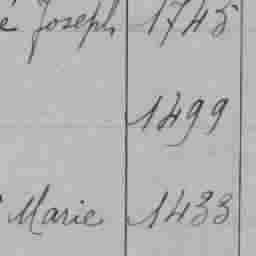 é Joseph 1745
1499
Marie 1433